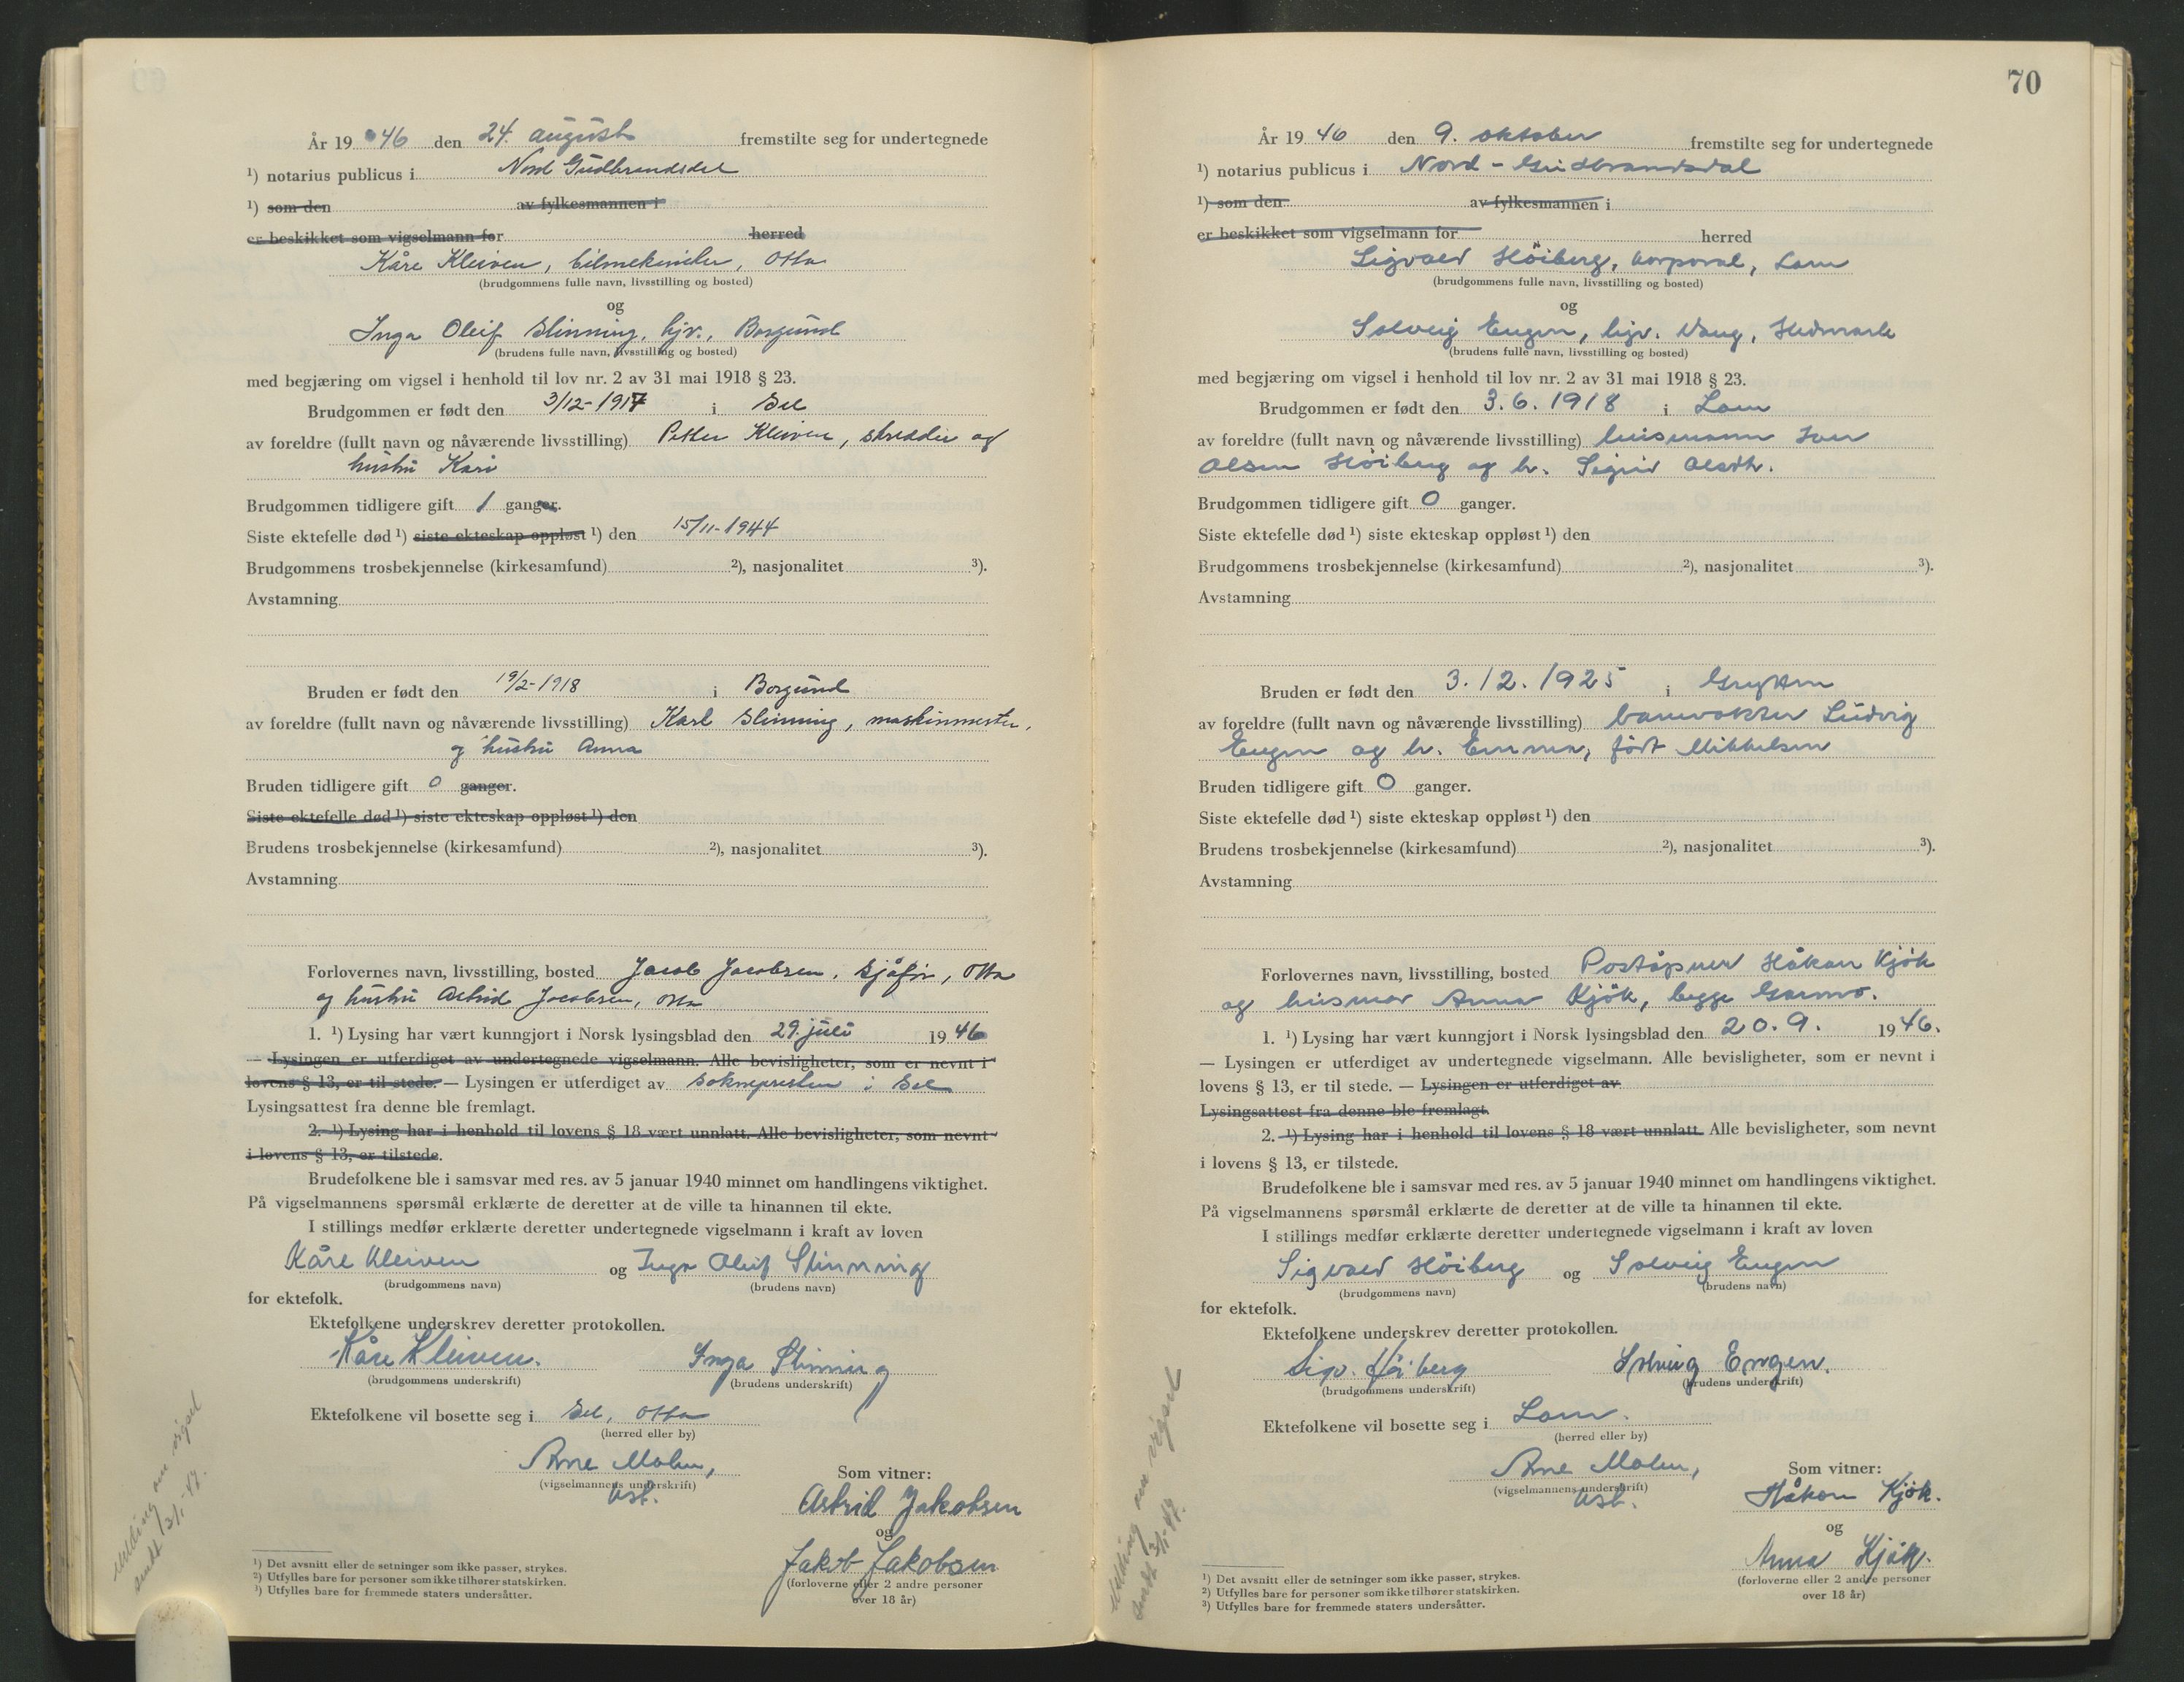 År 1946 den 24. august fremstilte seg for undertegnede
¹) notarius publicus i Nord Gudbrandsdal
¹) som den av fylkesmannen i
er beskikket som vigselmann for herred
Kåre Kleiven, bilmekaniker, Otta
(brudgommens fulle navn, livsstilling og bosted)
og
Inga Oleif Slinning, hjv., Borgund
(brudens fulle navn, livsstilling og bosted)
med begjæring om vigsel i henhold til lov nr. 2 av 31 mai 1918 § 23.
Brudgommen er født den 3/12-1917 i Sel
av foreldre (fullt navn og nåværende livsstilling) Petter Kleiven, skredder og
hustru Kari
Brudgommen tidligere gift 1 ganger.
Siste ektefelle død ¹) siste ekteskap oppløst ¹) den 15/11-1944
Brudgommens trosbekjennelse (kirkesamfund) ²), nasjonalitet ³).
Avstamning
Bruden er født den 19/2-1918 i Borgund
av foreldre (fullt navn og nåværende livsstilling) Karl Slinning, maskinmester,
og hustru Anna
Bruden tidligere gift 0 ganger.
Siste ektefelle død ¹) siste ekteskap oppløst ¹) den
Brudens trosbekjennelse (kirkesamfund) ²), nasjonalitet ³).
Avstamning
Forlovernes navn, livsstilling, bosted Jacob Jacobsen, sjåfør, Otta
og hustru Astrid Jacobsen, Otta
1. ¹) Lysing har vært kunngjort i Norsk lysingsblad den 29. juli 1946
— Lysingen er utferdiget av undertegnede vigselmann. Alle bevisligheter, som er nevnt i
lovens § 13, er til stede. — Lysingen er utferdiget av soknepresten i Sel
Lysingsattest fra denne ble fremlagt.
2. ¹) Lysing har i henhold til lovens § 18 vært unnlatt. Alle bevisligheter, som nevnt
i lovens § 13, er tilstede.
Brudefolkene ble i samsvar med res. av 5 januar 1940 minnet om handlingens viktighet.
På vigselmannens spørsmål erklærte de deretter at de ville ta hinannen til ekte.
I stillings medfør erklærte deretter undertegnede vigselmann i kraft av loven
Kåre Kleiven og Inga Oleif Slinning
(brudgommens navn) (brudens navn)
for ektefolk.
Ektefolkene underskrev deretter protokollen.
Kåre Kleiven. Inga Slinning
(brudgommens underskrift) (brudens underskrift)
Ektefolkene vil bosette seg i Sel, Otta
(herred eller by)
Arne Molen,
(vigselmannens underskrift)
ast.
Som vitner:
Astrid Jakobsen
og
Jakob Jakobsen
(forloverne eller 2 andre personer
over 18 år)
Melding om vigsel
sendt 3/1-47.
¹) Det avsnitt eller de setninger som ikke passer, strykes.
²) Utfylles bare for personer som ikke tilhører statskirken.
³) Utfylles bare for fremmede staters undersåtter.
70
År 1946 den 9. oktober fremstilte seg for undertegnede
¹) notarius publicus i Nord-Gudbrandsdal
¹) som den av fylkesmannen i
er beskikket som vigselmann for herred
Sigvald Höiberg, korporal, Lom
(brudgommens fulle navn, livsstilling og bosted)
og
Solveig Engen, hjv. Vang, Hedmark
(brudens fulle navn, livsstilling og bosted)
med begjæring om vigsel i henhold til lov nr. 2 av 31 mai 1918 § 23.
Brudgommen er født den 3.6.1918 i Lom
av foreldre (fullt navn og nåværende livsstilling) husmann Iver
Olsen Höiberg og h. Sigrid Olsdtr.
Brudgommen tidligere gift 0 ganger.
Siste ektefelle død ¹) siste ekteskap oppløst ¹) den
Brudgommens trosbekjennelse (kirkesamfund) ²), nasjonalitet ³).
Avstamning
Bruden er født den 3.12.1925 i Grytten
av foreldre (fullt navn og nåværende livsstilling) banevokter Ludvig
Engen og h. Emma, født Mikkelsen
Bruden tidligere gift 0 ganger.
Siste ektefelle død ¹) siste ekteskap oppløst ¹) den
Brudens trosbekjennelse (kirkesamfund) ²), nasjonalitet ³).
Avstamning
Forlovernes navn, livsstilling, bosted Poståpner Håkon Kjök
og husmor Anna Kjök, begge Garmo.
1. ¹) Lysing har vært kunngjort i Norsk lysingsblad den 20.9. 1946.
— Lysingen er utferdiget av undertegnede vigselmann. Alle bevisligheter, som er nevnt i
lovens § 13, er til stede. — Lysingen er utferdiget av
Lysingsattest fra denne ble fremlagt.
2. ¹) Lysing har i henhold til lovens § 18 vært unnlatt. Alle bevisligheter, som nevnt
i lovens § 13, er tilstede.
Brudefolkene ble i samsvar med res. av 5 januar 1940 minnet om handlingens viktighet.
På vigselmannens spørsmål erklærte de deretter at de ville ta hinannen til ekte.
I stillings medfør erklærte deretter undertegnede vigselmann i kraft av loven
Sigvald Höiberg og Solveig Engen
(brudgommens navn) (brudens navn)
for ektefolk.
Ektefolkene underskrev deretter protokollen.
Sigv. Höiberg Solveig Engen.
(brudgommens underskrift) (brudens underskrift)
Ektefolkene vil bosette seg i Lom.
(herred eller by)
Arne Molen,
(vigselmannens underskrift)
ast.
Som vitner:
Håkon Kjök.
og
Anna Kjök.
(forloverne eller 2 andre personer
over 18 år)
Melding om vigsel
sendt 3/1-47.
¹) Det avsnitt eller de setninger som ikke passer, strykes.
²) Utfylles bare for personer som ikke tilhører statskirken.
³) Utfylles bare for fremmede staters undersåtter.